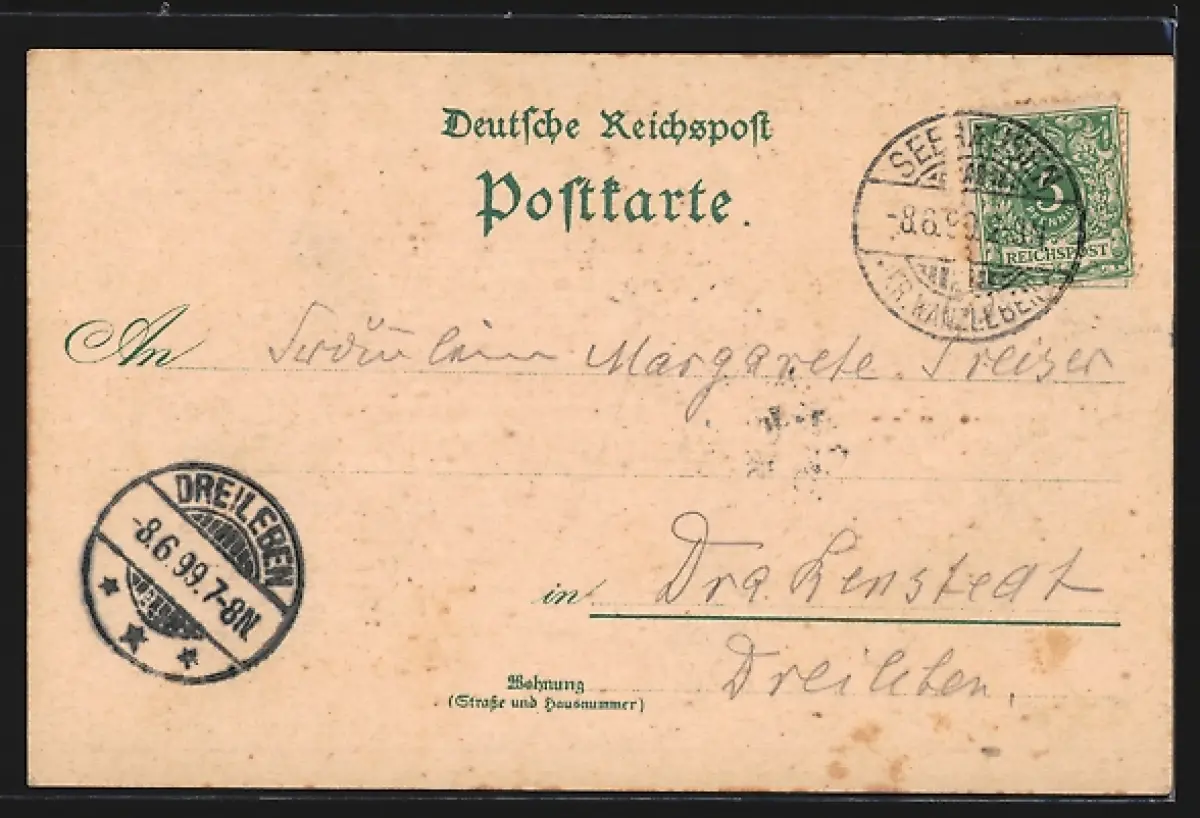 Deutsche Reichspost
Postkarte.
SEEHAUSEN
-8.6.99.
(KR. WANZLEBEN)
5
PFENNIG
REICHSPOST
An Fräulein Margarete
in Drakenstedt
Dreileben.
DREILEBEN
-8.6.99.7-8N
Wohnung
(Straße und Hausnummer)